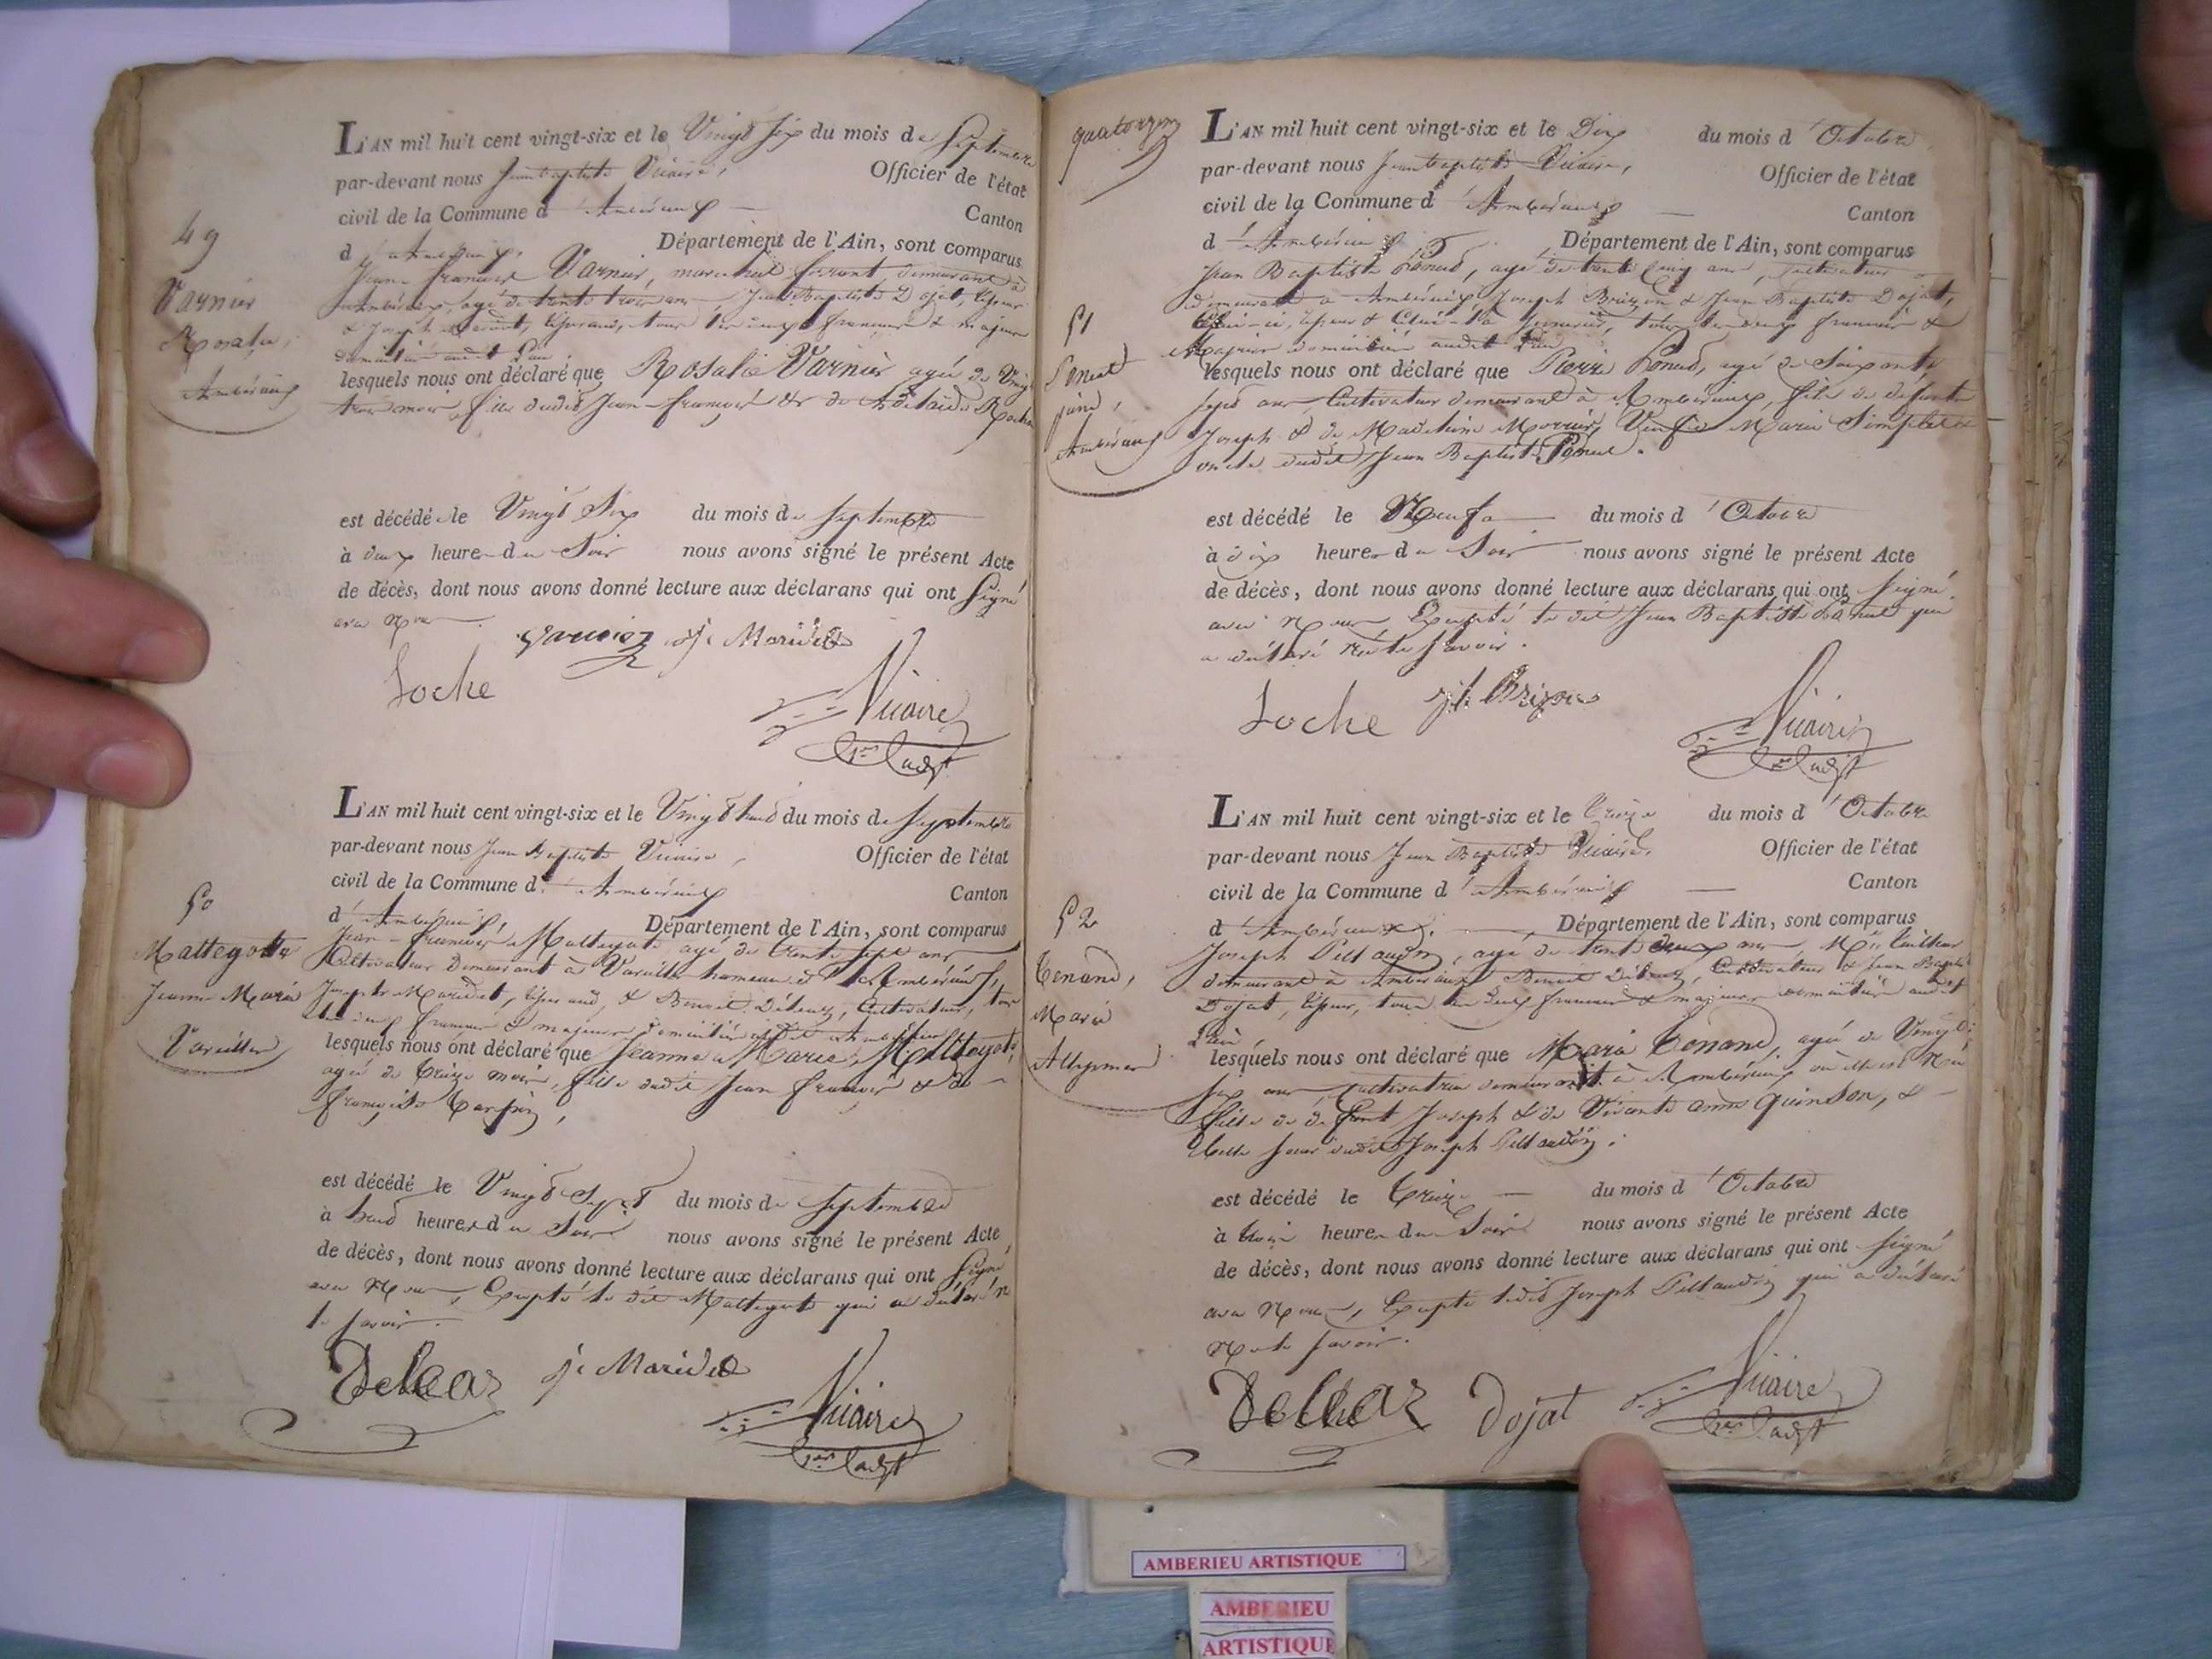 49
Varnier
Rosalie,
Ambérieux
L'AN mil huit cent vingt-six et le Vingt six du mois de Septembre
par-devant nous Jean baptiste Vicaire, Officier de l'état
civil de la Commune d'Ambérieux — Canton
d'Ambérieux, Département de l'Ain, sont comparus
Jean-françois Varnier, marechal ferrant demeurant à
Ambérieux, agé de trente trois ans, Jean Baptiste Dojat,
& Joseph tous les deux français & majeurs
domiciliés audit Lieu
lesquels nous ont déclaré que Rosalie Varnier agée de Vingt
trois mois, fille dudit Jean-françois & de Adélaïde
est décédée le Vingt Six du mois de Septembre
à deux heures du Soir nous avons signé le présent Acte
de décès, dont nous avons donné lecture aux déclarans qui ont Signé
avec Nous.
Varnier je Maridet
Loche
Vicaire
1er adjt
50
Mattegotte
Jeanne Marie
Vareilles
L'AN mil huit cent vingt-six et le Vingt huit du mois de Septembre
par-devant nous Jean Baptiste Vicaire, Officier de l'état
civil de la Commune d'Ambérieux Canton
d'Ambérieux, Département de l'Ain, sont comparus
Jean-françois Mattegotte agé de trente sept ans
Cultivateur demeurant à Vareilles hameau d'Ambérieux,
Joseph Maridet, tisserand, & Benoit Cultivateur, tous
les deux français & majeurs domiciliés audit Ambérieux
lesquels nous ont déclaré que Jeanne Marie Mattegotte,
agée de treize mois, fille dudit Jean françois & de
françoise
est décédé le Vingt Sept du mois de Septembre
à huit heures du Soir nous avons signé le présent Acte
de décès, dont nous avons donné lecture aux déclarans qui ont Signé
avec Nous, Excepté le dit Mattegotte qui a déclaré ne
le savoir.
je Maridet
Vicaire
1er adjt
quatorze
51
Ponud
pierre,
Ambérieux
L'AN mil huit cent vingt-six et le Dix du mois d'Octobre
par-devant nous Jean baptiste Vicaire, Officier de l'état
civil de la Commune d'Ambérieux — Canton
d'Ambérieux Département de l'Ain, sont comparus
Jean Baptiste Ponud, agé de trente Cinq ans, Cultivateur
demeurant à Ambérieux, Joseph Brizon & Jean Baptiste Dojat,
Celui-ci, & Celui-là tous les deux français &
Majeurs domiciliés audit Lieu
lesquels nous ont déclaré que Pierre Ponud, agé de Soixante
Sept ans, Cultivateur demeurant à Ambérieux, fils de défunts
Joseph & de Madelaine Morrier, Veuf de Marie Simplet &
oncle dudit Jean Baptiste Ponud.
est décédé le Neuf — du mois d'Octobre
à dix heures du Soir nous avons signé le présent Acte
de décès, dont nous avons donné lecture aux déclarans qui ont Signé
avec Nous, Excepté le dit Jean Baptiste Ponud qui
a déclaré ne le Savoir.
Loche jh Brizon
Vicaire
1er adjt
52
Tenand,
Marie
L'AN mil huit cent vingt-six et le Treize du mois d'Octobre
par-devant nous Jean Baptiste Vicaire, Officier de l'état
civil de la Commune d'Ambérieux — Canton
d'Ambérieux. — Département de l'Ain, sont comparus
Joseph Pittaudin, agé de trente deux ans, Md tailleur
demeurant à Ambérieux Benoit Cultivateur & Jean Baptiste
Dojat, tous les deux français & majeurs domiciliés audit
Lieu
lesquels nous ont déclaré que Marie Tenand, agée de Vingt
Six ans, Cultivatrice demeurant à Ambérieux où elle est Née
fille de défunt Joseph & de Vivante anne Quinson, &
belle soeur dudit Joseph Pittaudin.
est décédé le Treize — du mois d'Octobre
à trois heures du Soir nous avons signé le présent Acte
de décès, dont nous avons donné lecture aux déclarans qui ont Signé
avec Nous, Excepté ledit Joseph Pittaudin qui a déclaré
Ne le savoir.
Dojat
Vicaire
1er adjt
AMBERIEU ARTISTIQUE
AMBERIEU
ARTISTIQUE